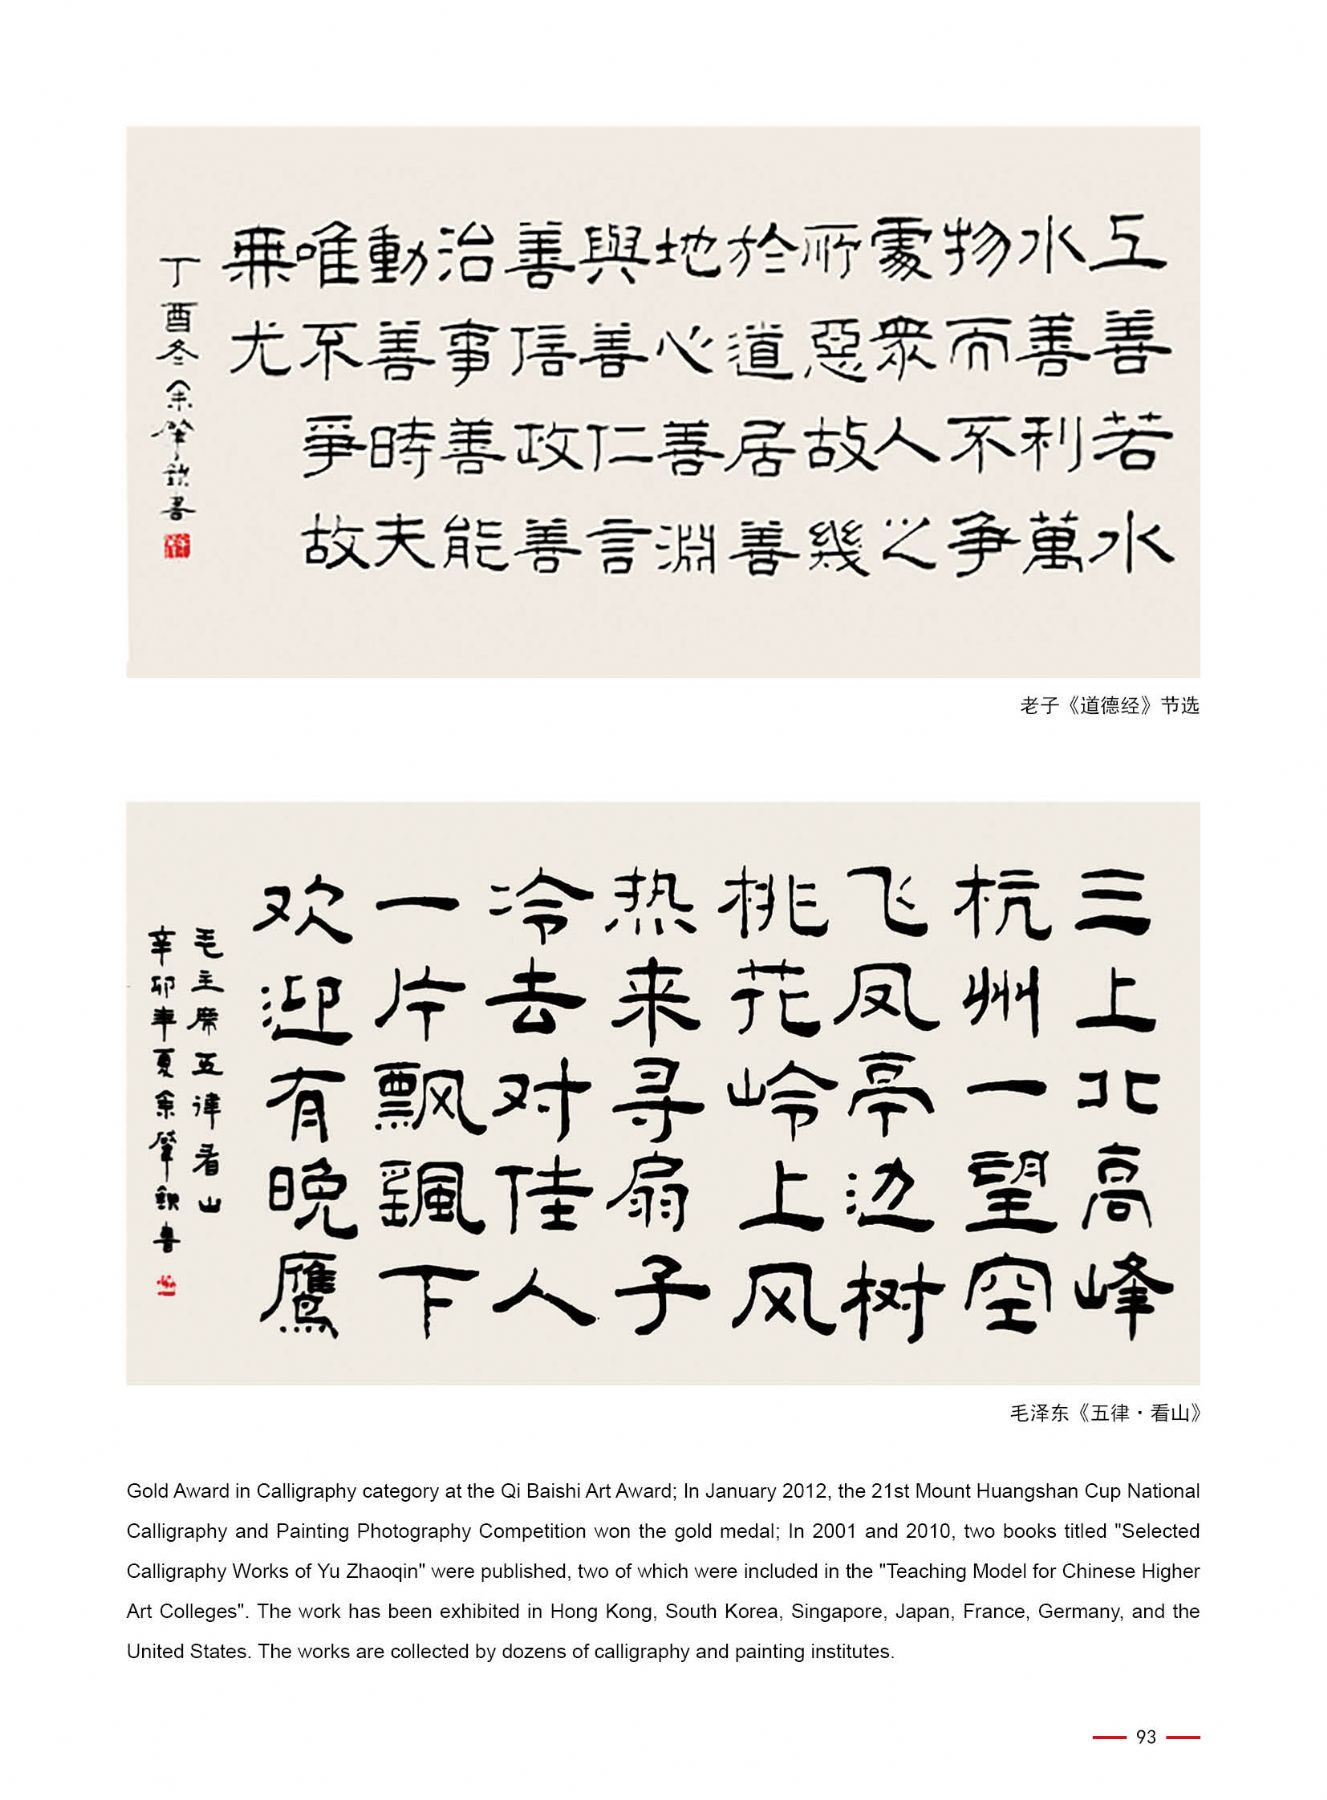 上善若水
水善利萬
物而不争
處衆人之
所惡故幾
於道居善
地心善淵
與善仁言
善信政善
治事善能
動善時夫
唯不爭故
無尤
丁酉冬余肇欽書
老子《道德经》节选
三上北高峰
杭州一望空
飞凤亭边树
桃花岭上风
热来寻扇子
冷去对佳人
一片飘飖下
欢迎有晚鹰
毛主席五律看山
辛卯年夏余肇欽書
毛泽东《五律·看山》
Gold Award in Calligraphy category at the Qi Baishi Art Award; In January 2012, the 21st Mount Huangshan Cup National
Calligraphy and Painting Photography Competition won the gold medal; In 2001 and 2010, two books titled "Selected
Calligraphy Works of Yu Zhaoqin" were published, two of which were included in the "Teaching Model for Chinese Higher
Art Colleges". The work has been exhibited in Hong Kong, South Korea, Singapore, Japan, France, Germany, and the
United States. The works are collected by dozens of calligraphy and painting institutes.
93